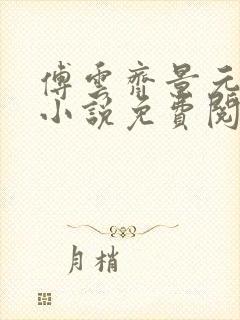 傅雲齊景元
小說免費閱
月梢